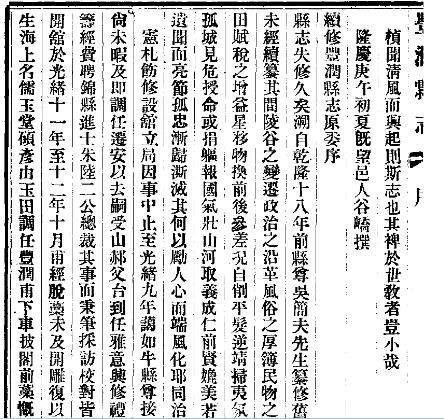 豐潤縣志
楨聞清風而興起則斯志也其裨於世敎者豈小哉
隆慶庚午初夏旣望邑人谷嶠撰
續修豐潤縣志原委序
縣志失修久矣溯自乾隆十八年前縣尊吳簡夫先生纂修舊
未經續纂其間陵谷之變遷政治之沿革風俗之厚簿民物之
田賦稅之增益星移物換前後參差況自削平髮逆靖掃夷氛
孤城見危授命或捐軀報國氣壯山河取義成仁前賢媲美若
遺聞而亮節孤忠漸歸澌滅其何以勵人心而端風化耶同治
憲札飭修設舘立局因事中止至光緒九年調如牛縣尊接
尙未暇及即調任遷安以去嗣受山郝父台到任雅意興修禮
籌經費聘錦縣進士朱陸二公總裁其事而秉筆採訪校對皆
開舘於光緒十一年至十二年十月甫經脫藁未及開雕復以
生海上名儒玉堂碩彥由玉田調任豐潤甫下車披閣前藁慨